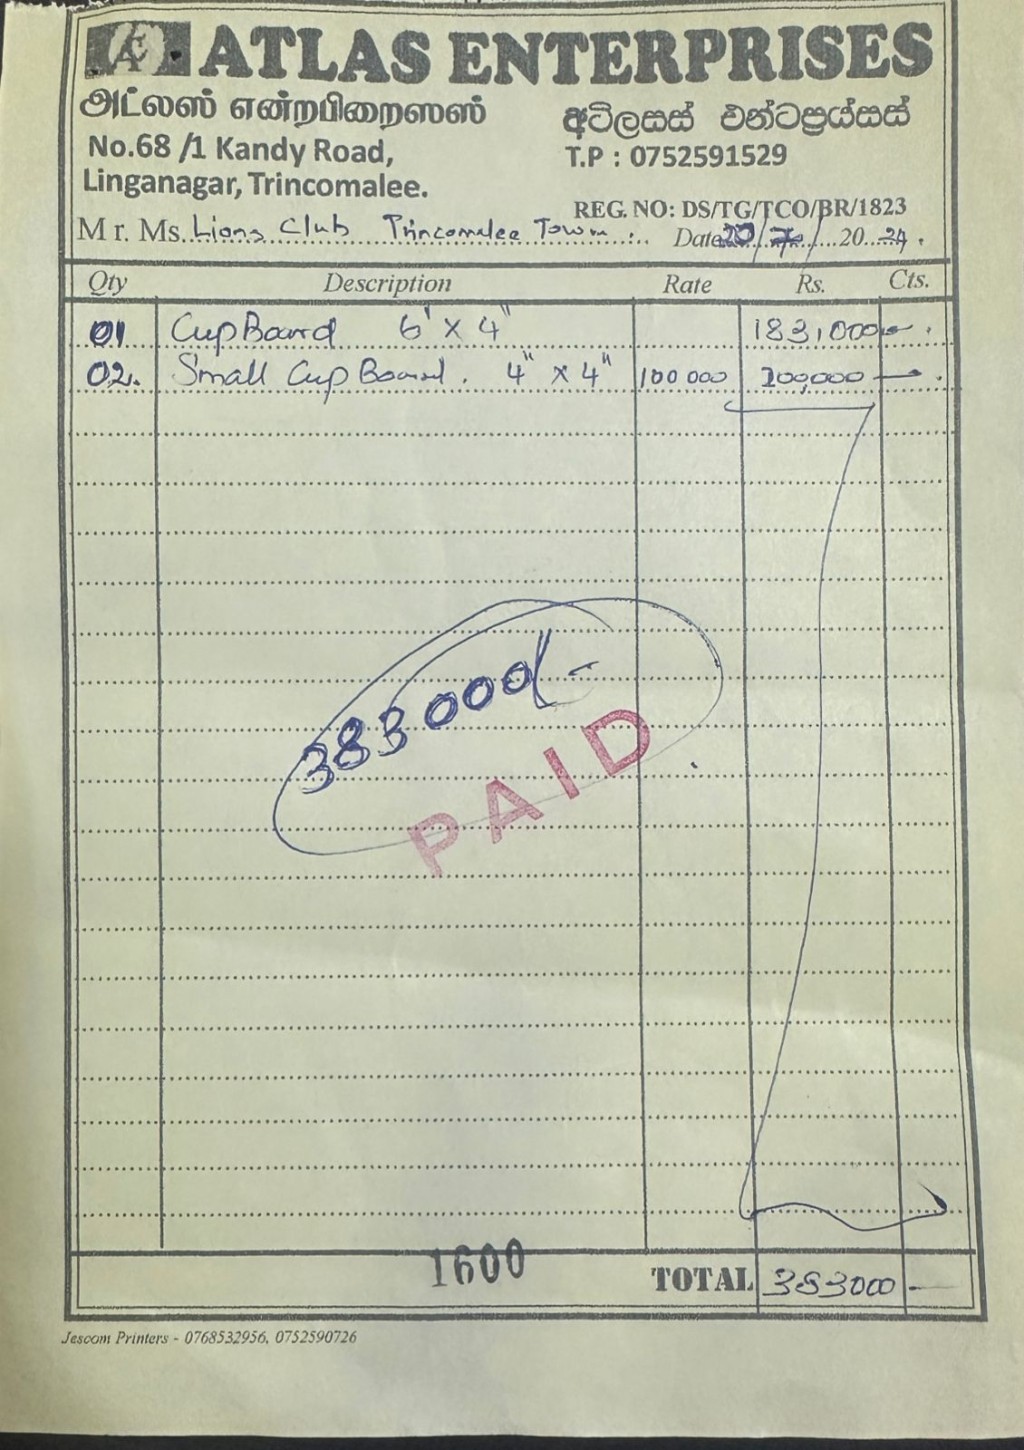 ATLAS ENTERPRISES
அட்லஸ் என்றபிறைஸஸ்
අට්ලසස් එන්ටප්‍රයිසස්
No.68 /1 Kandy Road,
Linganagar, Trincomalee.
T.P : 0752591529
REG. NO: DS/TG/TCO/BR/1823
Mr. Ms. Lions Club Trincomalee Town. Date 20/7/2024.
Qty Description Rate Rs. Cts.
01 CupBoard 6' X 4" 183,000 - .
02. Small CupBoard. 4" X 4" 100 000 200,000 - .
383 000/-
PAID
1600
TOTAL 383000 -
Jescom Printers - 0768532956, 0752590726